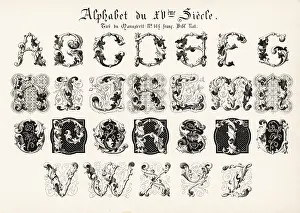 Alphabet du XVème Siècle.
Tiré du Manuscrit No. 165 franç. Bibl. Nat.
A B C D E F G
H I J K L M N
O P Q R S T U
V W X Y Z